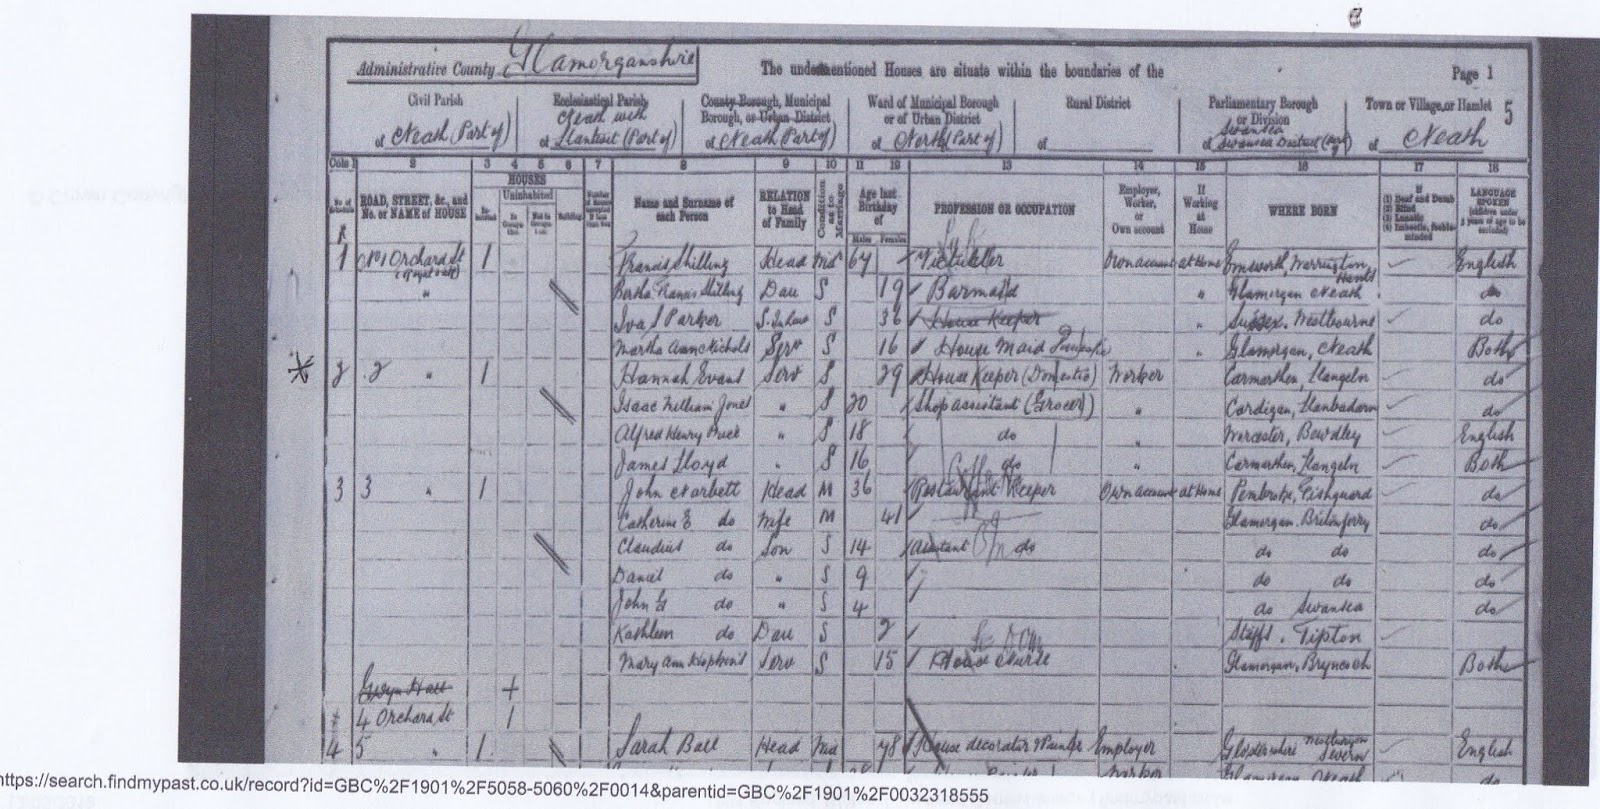 Administrative County Glamorganshire
The undermentioned Houses are situate within the boundaries of the
Page 1
Civil Parish
of Neath (Part of)
Ecclesiastical Parish
Neath with
of Llantwit (Part of)
County Borough, Municipal
Borough, or Urban District
of Neath (Part of)
Ward of Municipal Borough
or of Urban District
of North (Part of)
Rural District
of
Parliamentary Borough
or Division
Swansea
of Swansea District (Part of)
Town or Village, or Hamlet
of Neath
5
Cols 1 2 3 4 5 6 7 8 9 10 11 12 13 14 15 16 17 18
No. of Schedule
ROAD, STREET, &c., and No. or NAME of HOUSE
HOUSES
Uninhabited
Building
Name and Surname of each Person
RELATION to Head of Family
Condition as to Marriage
Age last Birthday of
Males Females
PROFESSION OR OCCUPATION
Employer, Worker, or Own account
If Working at Home
WHERE BORN
If (1) Deaf and Dumb (2) Blind (3) Lunatic (4) Imbecile, feeble-minded
LANGUAGE SPOKEN
1 No 1 Orchard St 1 Francis Shilling Head Wid 64 Victualler Own account at Home Emsworth, Warrington Hants English
" Bertha Francis Shilling Dau S 19 Barmaid " Glamorgan Neath do
Iva S Parker S. In Law S 36 House Keeper " Sussex, Westbourne do
Martha Ann Nichols Serv S 16 House Maid Domestic " Glamorgan, Neath Both
2 2 " 1 Hannah Evans Serv S 29 House Keeper (Domestic) Worker Carmarthen, Llangeln do
Isaac William Jones " S 20 Shop assistant (Grocer) " Cardigan, Llanbadarn do
Alfred Henry Price " S 18 do " Worcester, Bewdley English
James Lloyd " S 16 do " Carmarthen, Llangeln Both
3 3 " 1 John Narbett Head M 36 Restaurant Keeper Own account at Home Pembroke, Fishguard do
Catherine E do Wife M 41 Glamorgan, Britonferry do
Claudius do Son S 14 Assistant do do do do
Daniel do " S 9 do do do
John G do " S 4 do Swansea do
Kathleen do Dau S 2 Staffs. Tipton
Mary Ann Hopkins Serv S 15 Nurse Glamorgan, Bryncoch Both
Gwyn Hall
4 Orchard St 1
4 5 " 1 Sarah Ball Head Wid 48 House decorator & Painter Employer Glostershire Westbury on Severn English
Worker Glamorgan Neath do
https://search.findmypast.co.uk/record?id=GBC%2F1901%2F5058-5060%2F0014&parentid=GBC%2F1901%2F0032318555